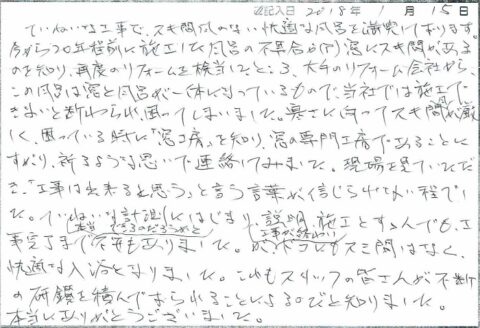 ご記入日 2018年 1月 15日
ていねいな工事で、スキ間風のない快適な風呂を満喫しております。
今から20年程前に施工した風呂の不具合が判り、窓にスキ間がある
のを知り、再度のリフォームを検討したところ、大手のリフォーム会社から、
この風呂は窓と風呂が一体になっているもので、当社では施工で
きないと断わられ困ってしまいました。寒さに向ってスキ間風が厳し
く、困っている時に「窓工房」を知り、窓の専門工房であることに
すがり、祈るような思いで連絡してみました。現場を見ていただ
き、「工事は出来ると思う」と言う言葉が信じられない程でし
た。ていねいな計測にはじまり、説明、施工とすすんでも、工
本当にできるのだろうかと
工事が終わり
事完了まで不安もありました。が、ドコにもスキ間はなく、
快適な入浴となりました。これもスタッフの皆さんが不断
の研鑽を積んでおられることによるのだと知りました。
本当にありがとうございました。